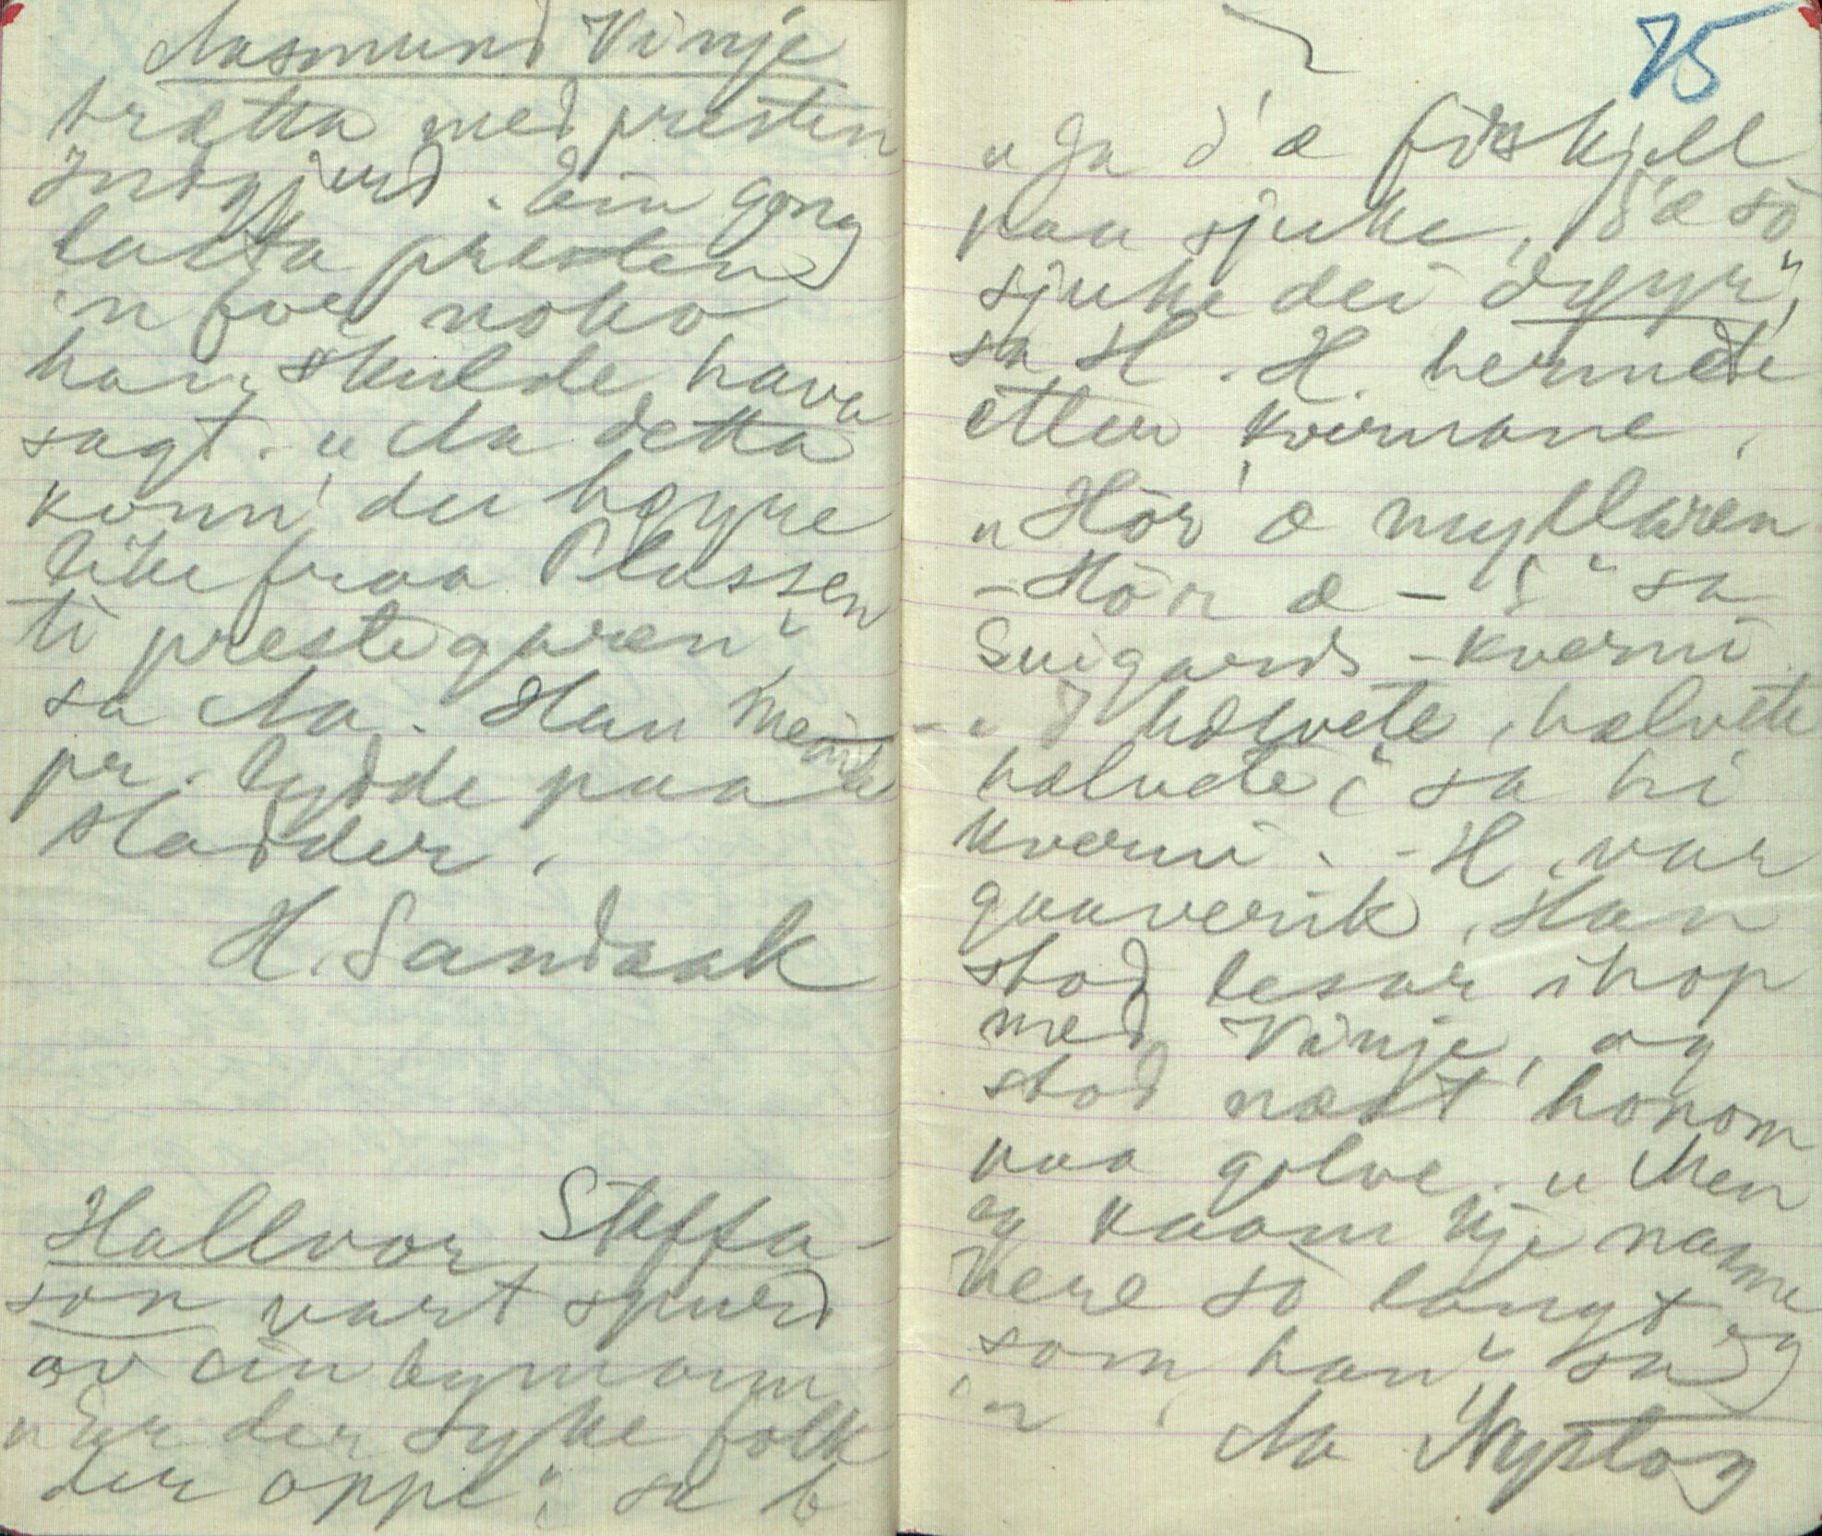 Aasmund Vinje
trætta med presten
Indgjerd. Ein gong
lasta presten
'n foe noko
han skulde hava
sagt. "Aa detta
konn' der høyre
like fraa Plassen
ti prestegaren"
sa Aa. Han meinte
pr. lydde paa
sladder.
H. Sandaak
Hallvor Steffa-
son vart spurd
av ein bymann
"Er der syke folk
der oppe", sa b
75
"Ja d'æ forskjell
paa sjuke, d'æ so
sjuke dei døyr",
sa H. H. hermde
etter kvernane.
"Hør æ myllaren
- Hør æ - " sa
Suigards-kverni
- "I helvete, helvete
helvete", sa hi
kverni. - H. var
gaaverik. Han
stod lesar ihop
med Vinje, og
stod næst honom
paa golve. "Men
eg kaam kje naame
vere so langt
som han" sa
'n. Aa Nyplog